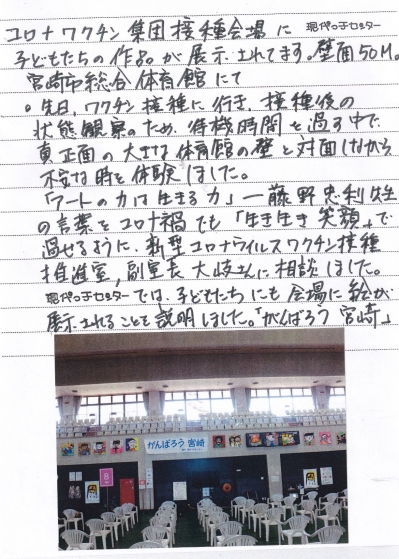 コロナワクチン集団接種会場に 現代っ子センター
子どもたちの作品が展示されてます。壁面50M。
宮崎市総合体育館にて
・先日、ワクチン接種に行き、接種後の
状態観察のため、待機時間を過す中で、
真正面の大きな体育館の壁と対面しながら、
不安な時を体験しました。
「アートの力は生きる力」―藤野忠利先生
の言葉をコロナ禍でも「生き生き笑顔」で
過せるように、新型コロナウイルスワクチン接種
推進室、副室長 大岐さんに相談しました。
現代っ子センターでは、子どもたちにも会場に絵が
展示されることを説明しました。「がんばろう 宮崎」
がんばろう 宮崎
8